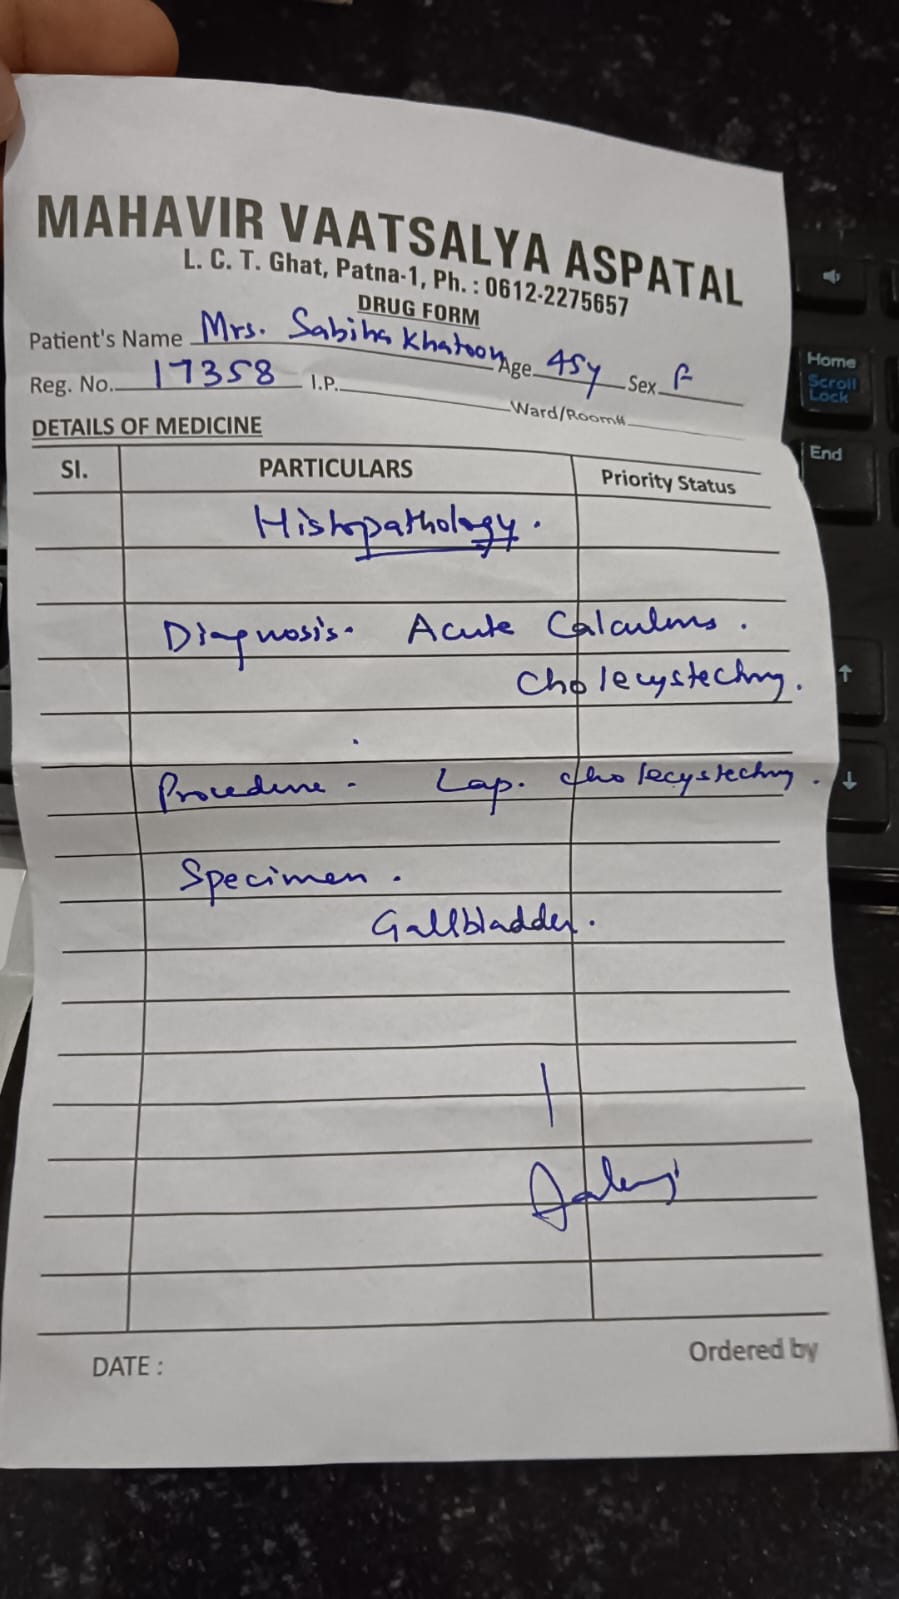 MAHAVIR VAATSALYA ASPATAL
L. C. T. Ghat, Patna-1, Ph. : 0612-2275657
DRUG FORM
Patient's Name Mrs. Sabiha Khatoon Age 45y Sex F
Reg. No. 17358 I.P. Ward/Room#
DETAILS OF MEDICINE
Sl. PARTICULARS Priority Status
Histopathology.
Diagnosis. Acute Calculous.
Cholecystectomy.
Procedure. Lap. Cholecystectomy.
Specimen.
Gallbladder.
DATE : Ordered by
Home
Scroll
Lock
End